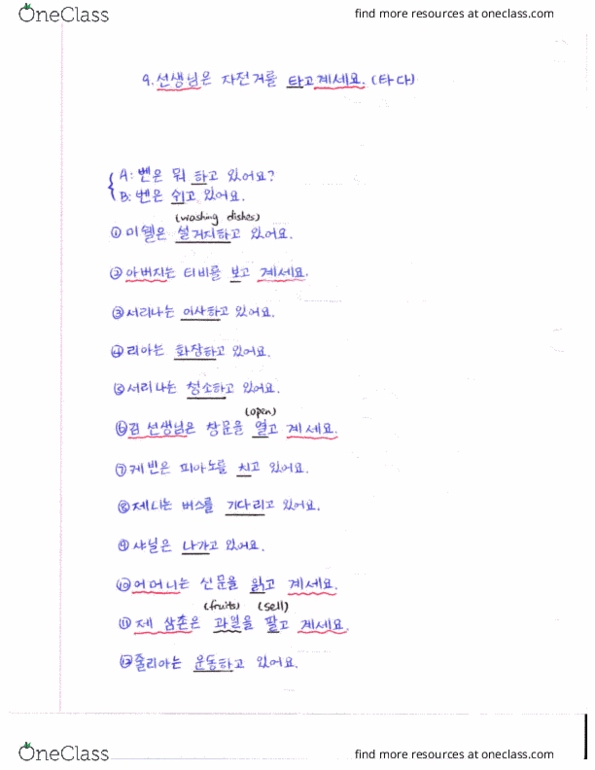 OneClass
find more resources at oneclass.com
9. 선생님은 자전거를 타고계세요. (타다)
A: 벤은 뭐 하고 있어요?
B: 벤은 쉬고 있어요.
(washing dishes)
① 미쉘은 설거지하고 있어요.
② 아버지는 티비를 보고 계세요.
③ 서리나는 이사하고 있어요.
④ 리아는 화장하고 있어요.
⑤ 서리나는 청소하고 있어요.
(open)
⑥ 김 선생님은 창문을 열고 계세요.
⑦ 케빈은 피아노를 치고 있어요.
⑧ 제니는 버스를 기다리고 있어요.
⑨ 샤닐은 나가고 있어요.
⑩ 어머니는 신문을 읽고 계세요.
(fruits) (sell)
⑪ 제 삼촌은 과일을 팔고 계세요.
⑫ 줄리아는 운동하고 있어요.
OneClass
find more resources at oneclass.com